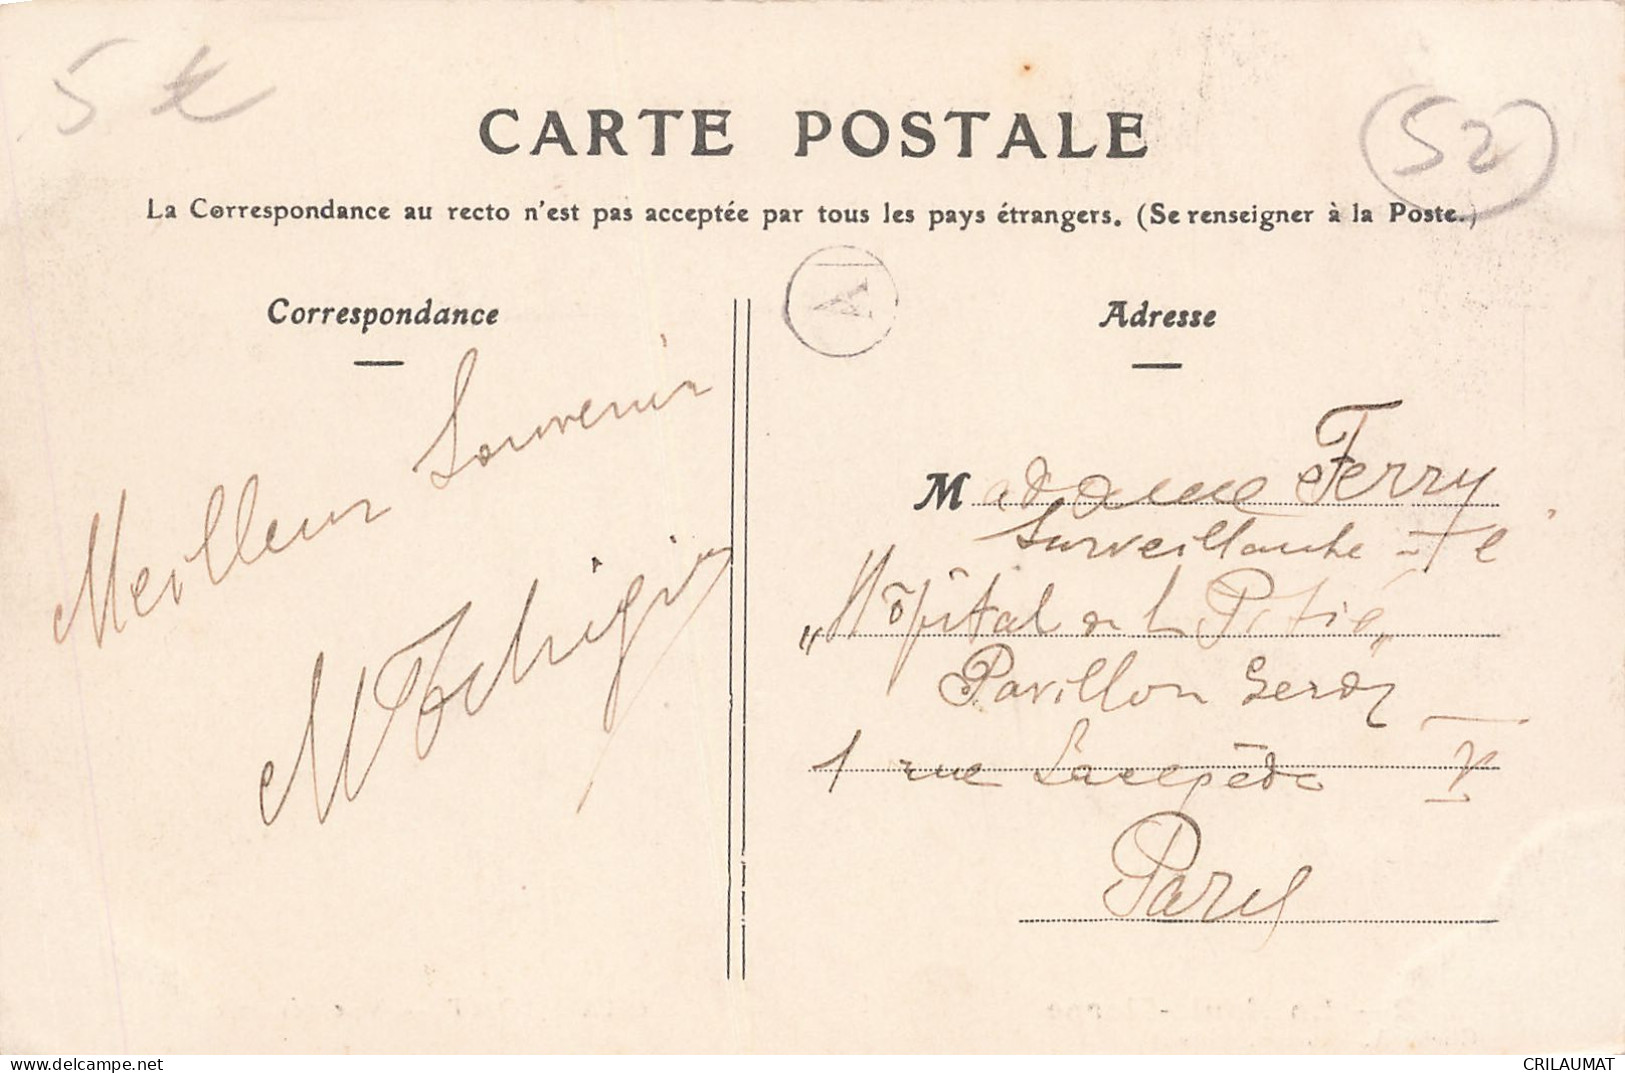 5 €
52
CARTE POSTALE
La Correspondance au recto n'est pas acceptée par tous les pays étrangers. (Se renseigner à la Poste.)
A
Correspondance
Meilleur Souvenir
Adresse
Madame Ferry
Surveillante
"Hôpital de la Pitié"
Pavillon Gerdy
1 rue Lacépède V
Paris
www.delcampe.net
CRILAUMAT